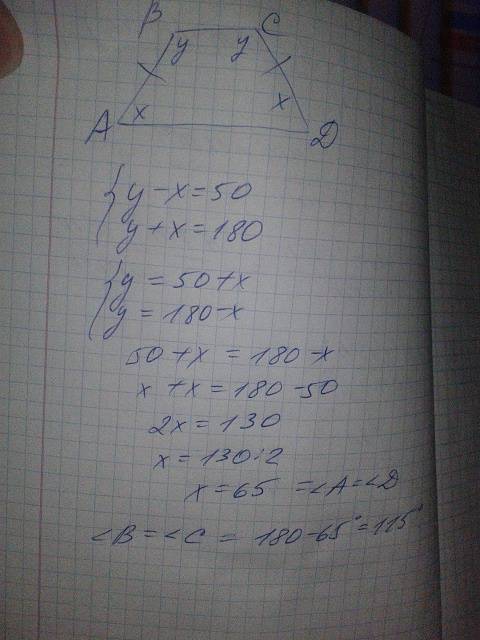 B C
y y
x x
A D
{ y - x = 50
y + x = 180
{ y = 50 + x
y = 180 - x
50 + x = 180 - x
x + x = 180 - 50
2x = 130
x = 130:2
x = 65 = ∠A = ∠D
∠B = ∠C = 180 - 65° = 115°